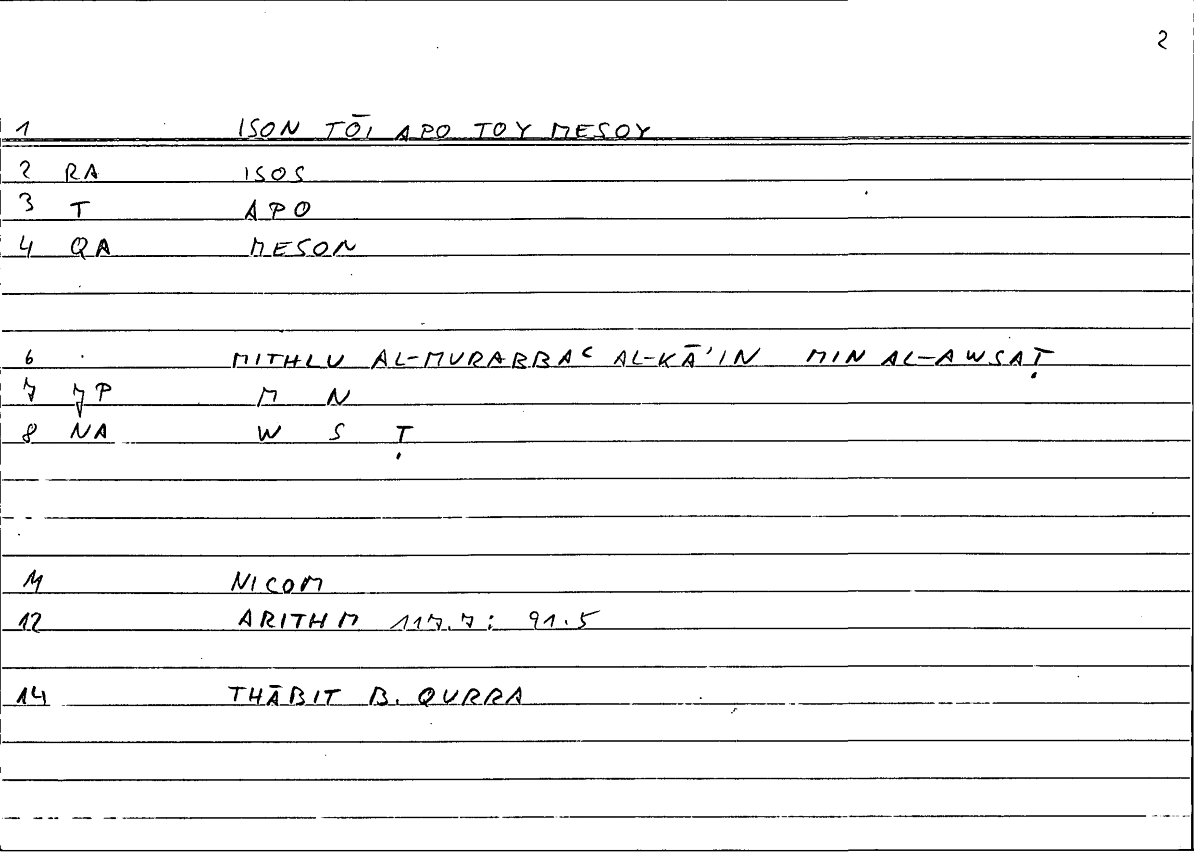 2
1 ISON TŌI APO TOY MESOY
2 RA ISOS
3 T APO
4 QA MESON
6 MITHLU AL-MURABBAʿ AL-KĀʾIN MIN AL-AWSAṬ
7 JP M N
8 NA W S Ṭ
11 NICOM
12 ARITHM 117.7: 91.5
14 THĀBIT B. QURRA